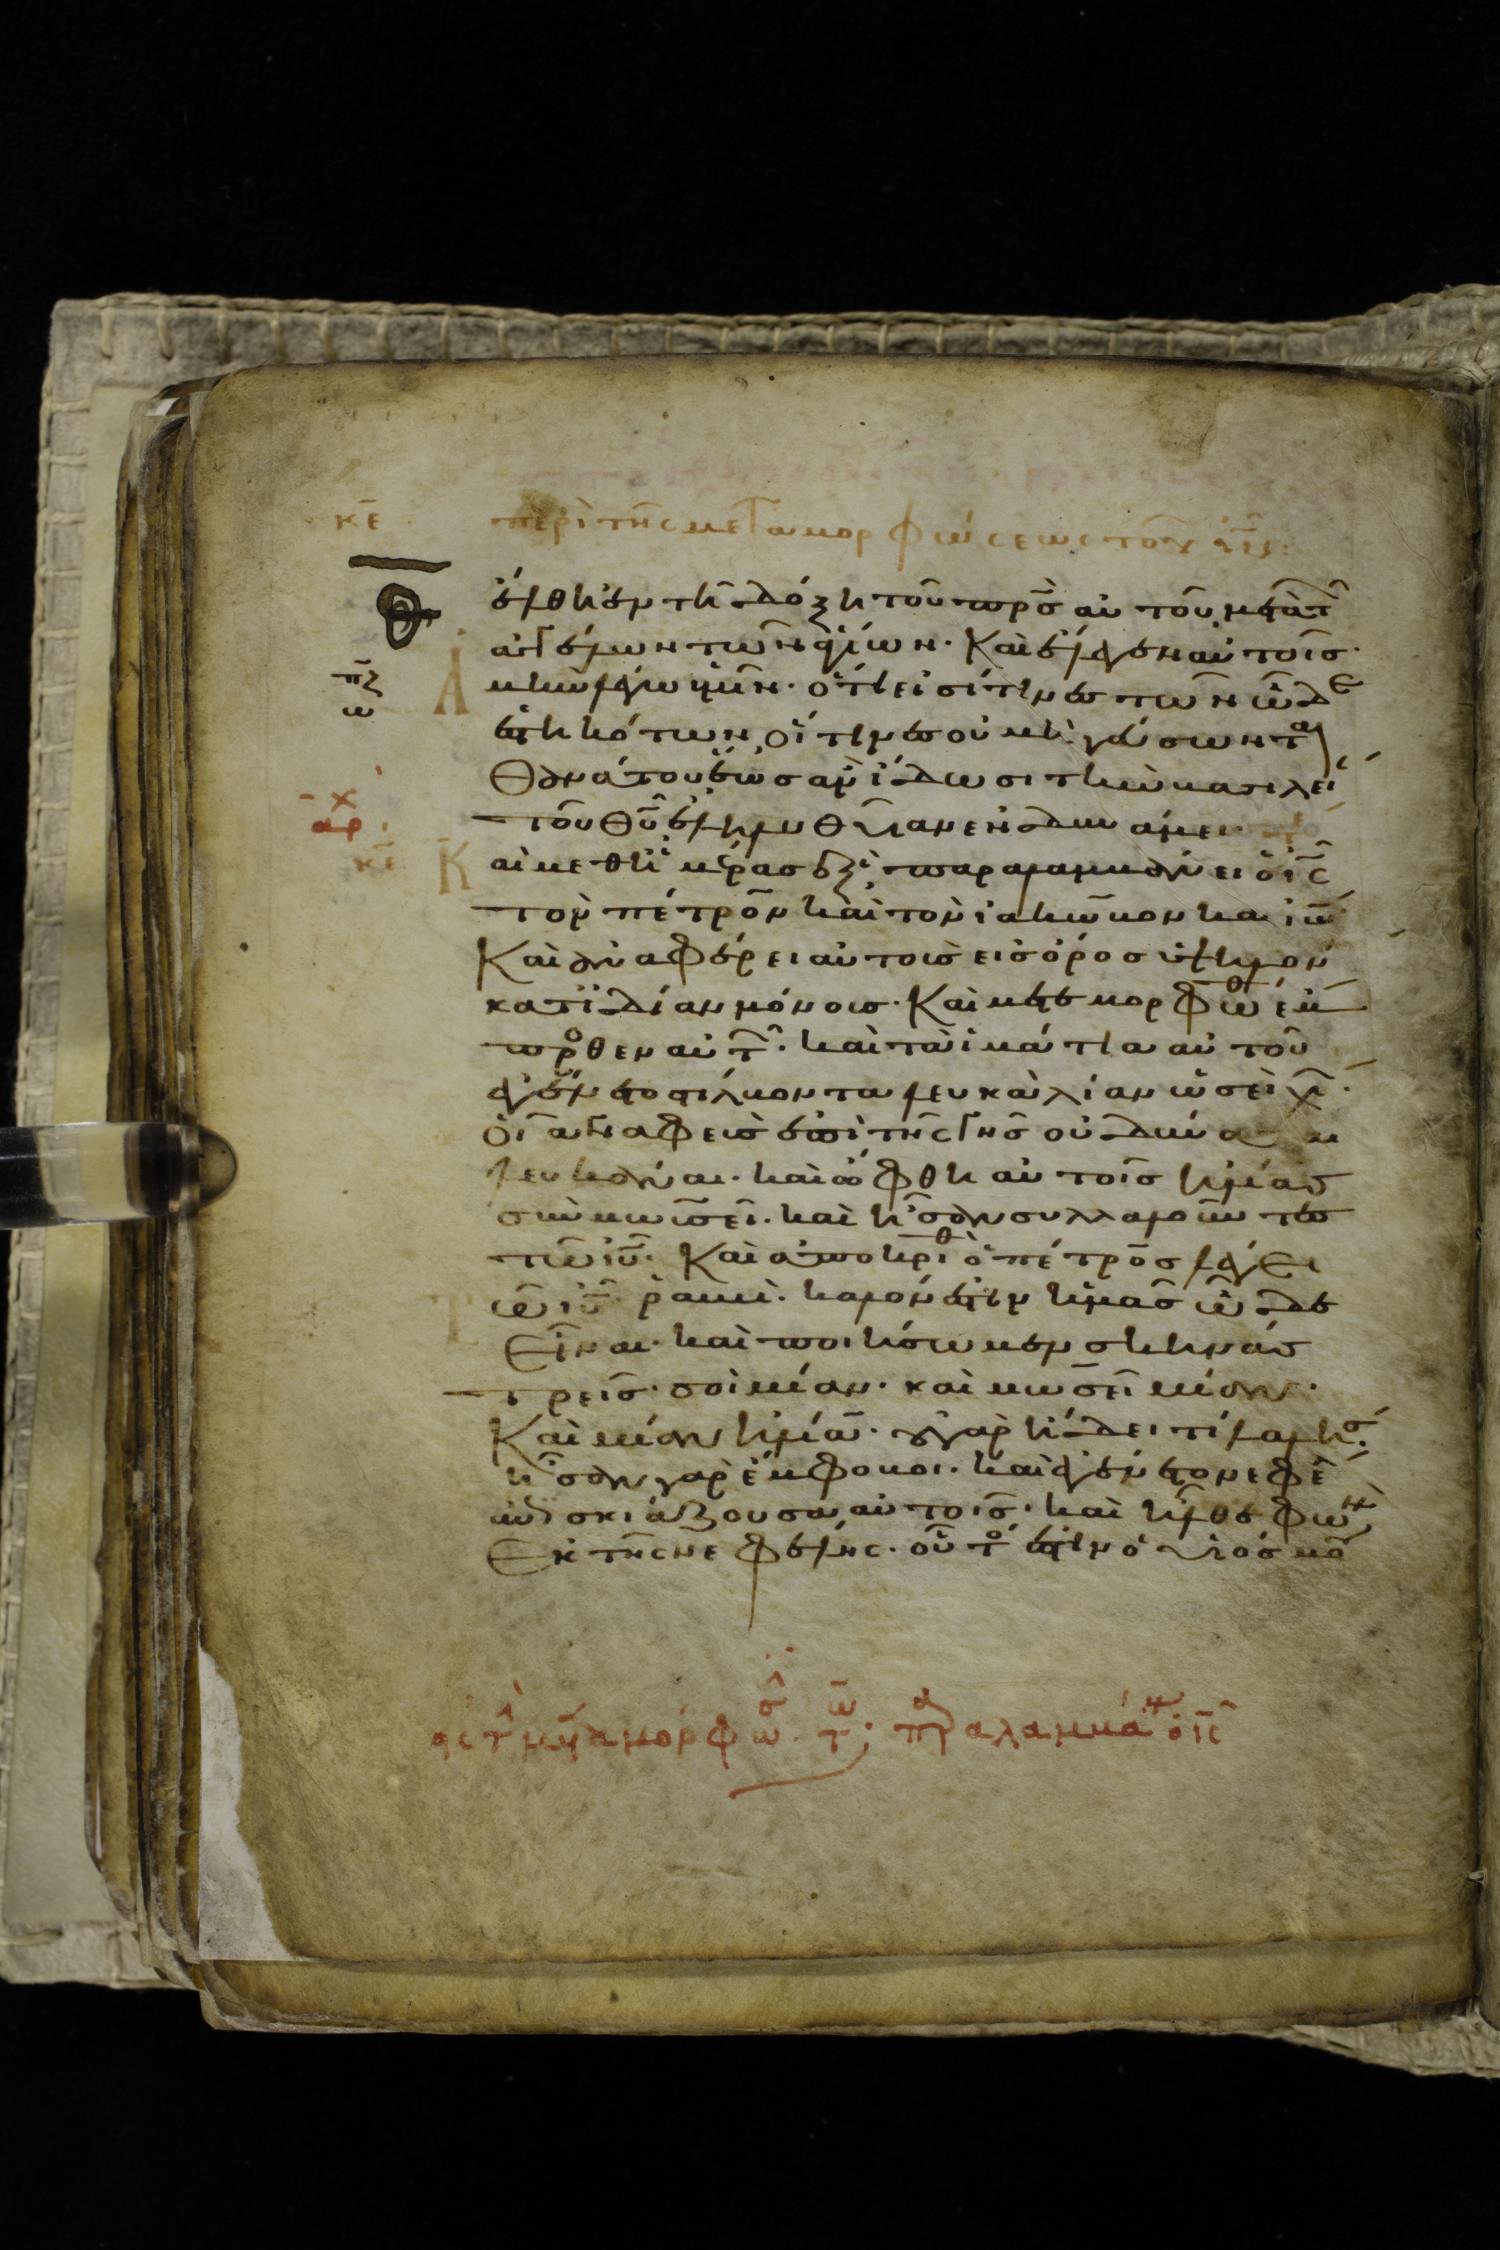 κε περὶ τῆς μεταμορφώσεως τοῦ ιυ:
ἔλθη ἐν τῆ δόξη τοῦ πρς αὐτοῦ μετὰ τ
ἀγγέλων τῶν ἁγίων· Καὶ ἔλεγεν αὐτοῖς·
Ἀμὴν λέγω ὑμῖν· ὅτι εἰσί τινες τῶν ὧδε
ἑστηκότων, οἵτινες οὐ μὴ γεύσωνται
Θανάτου ἕως ἂν ἴδωσι τὴν βασιλεί
τοῦ Θυ ἐληλυθυῖαν ἐν δυνάμει
Καὶ μεθ ἡμέρας ἓξ παραλαμβάνει ὁ ις
τὸν πέτρον καὶ τὸν ἰάκωβον καὶ ἰω
Καὶ ἀναφέρει αὐτοὺς εἰς ὄρος ὑψηλὸν
κατἰδίαν μόνους· Καὶ μετεμορφώθ ἔμ
προθεν αὐτ· καὶ τὰ ἱμάτια αὐτοῦ
ἐγένετο στίλβοντα λευκὰ λίαν ὡσεὶ χι·
οἷα γναφεὺς ἐπὶ τῆς γῆς οὐ δύνατ
λευκᾶναι· καὶ ὤφθη αὐτοῖς ἠλίας
σὺν μωσεῖ· καὶ ἦσαν συλλαλοῦντες
τῶ ιυ· Καὶ ἀποκριθ ὁ πέτρος λέγει
τῶ ιυ· ῥαββί· καλόν ἐστιν ἡμᾶς ὧδε
Εἶναι· καὶ ποιήσωμεν σκηνὰς
τρεῖς· σοὶ μίαν· καὶ μωσεῖ μίαν·
Καὶ μίαν ἠλία· οὐ γὰρ ἤδει τί λαλήσ·
ἦσαν γὰρ ἔκφοβοι· καὶ ἐγένετο νεφέ
ἐπισκιάζουσα αὐτοῖς· καὶ ἦλθε φων
Ἐκ τῆς νεφέλης· οὗτο ἐστιν ὁ υἱός μου